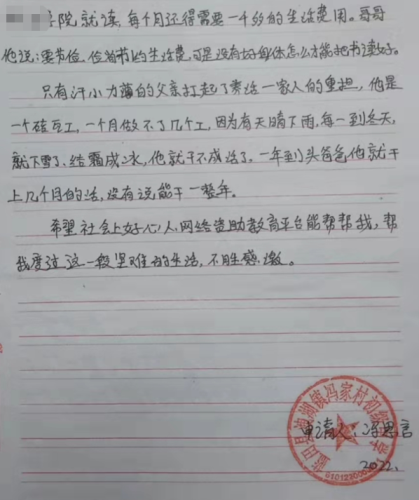 学院就读，每个月还得需要一千多的生活费用。哥哥
他说：要节俭，俭省节约生活费，可是没有好身体怎么才能把书读好。
只有汗小力薄的父亲扛起了养活一家人的重担，他是
一个砖瓦工，一个月做不了几个工，因为有天晴下雨，每一到冬天，
就下雪了，结霜成冰，他就干不成活了。一年到头爸爸他就干
上几个月的活，没有说能干一整年。
希望社会上好心人，网络资助教育平台能帮帮我，帮
我度过这一段坚难的生活，不胜感激。
蓝田县 湖镇冯家村初级
申请人：冯 言
2022.